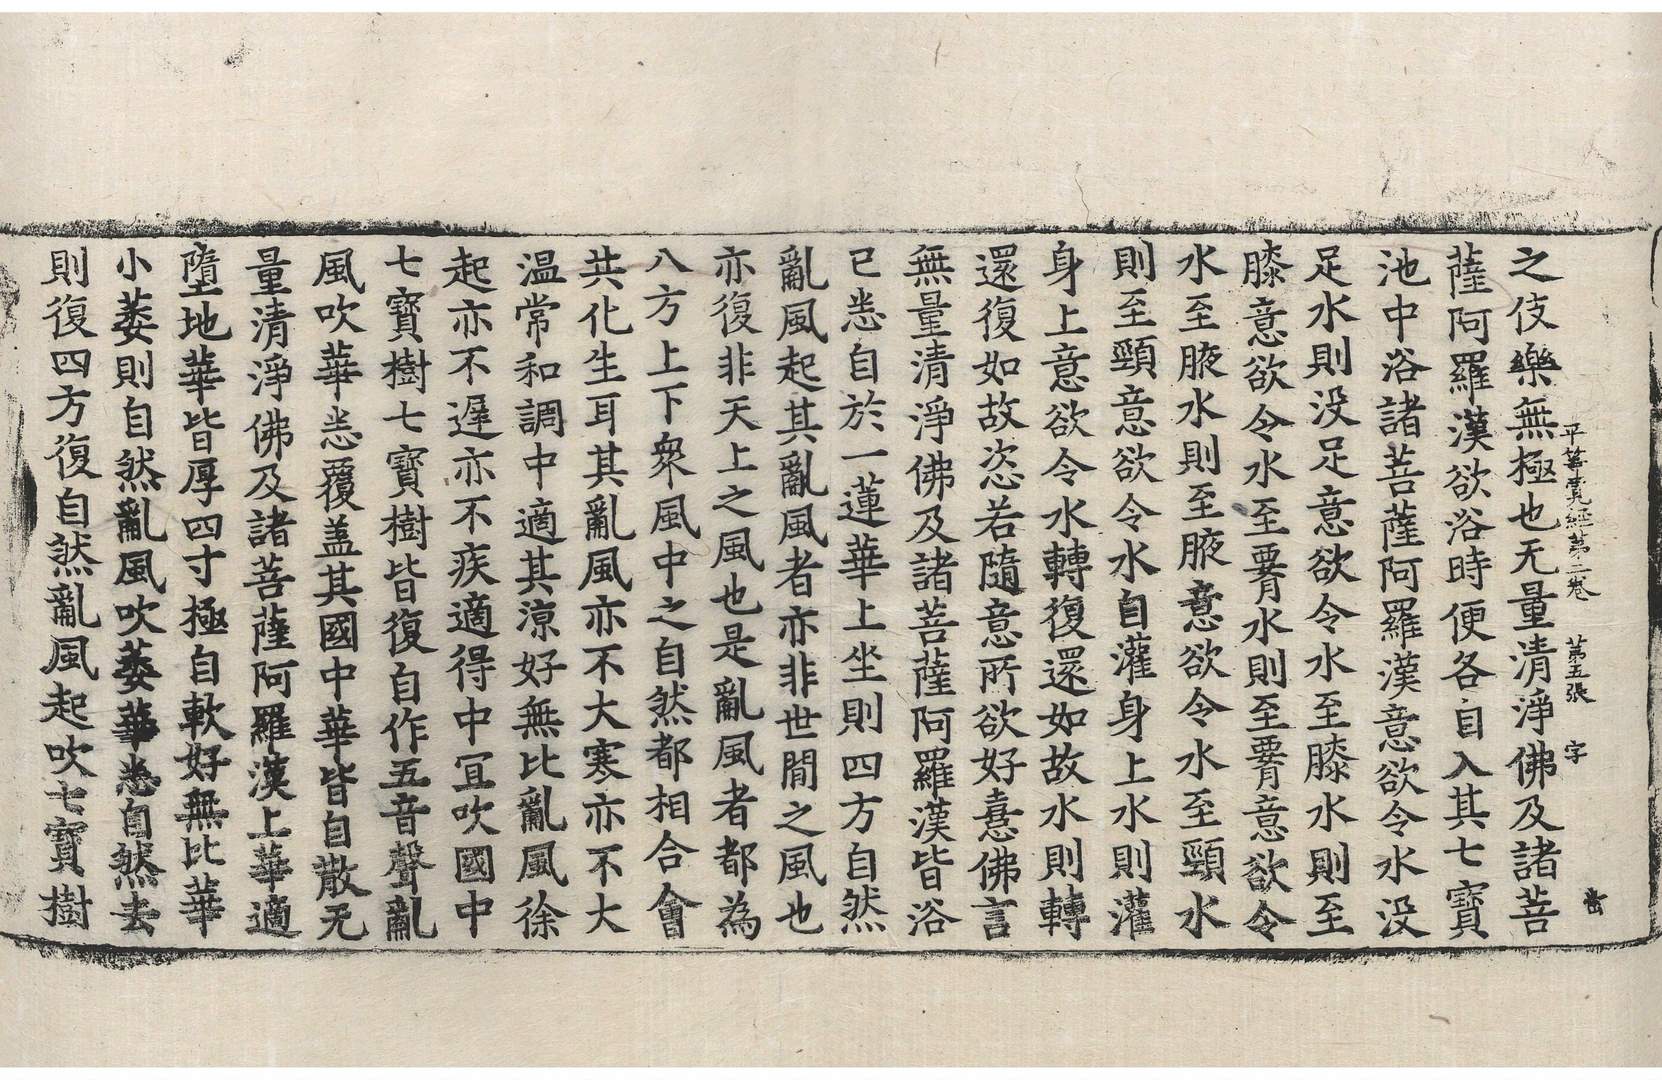 平等覺經第二卷　第五張　字
之伎樂無極也无量清淨佛及諸菩
薩阿羅漢欲浴時便各自入其七寶
池中浴諸菩薩阿羅漢意欲令水没
足水則没足意欲令水至膝水則至
膝意欲令水至𦝫水則至𦝫意欲令
水至腋水則至腋意欲令水至頸水
則至頸意欲令水自灌身上水則灌
身上意欲令水轉復還如故水則轉
還復如故恣若隨意所欲好憙佛言
無量清淨佛及諸菩薩阿羅漢皆浴
已悉自於一蓮華上坐則四方自然
亂風起其亂風者亦非世間之風也
亦復非天上之風也是亂風者都為
八方上下衆風中之自然都相合會
共化生耳其亂風亦不大寒亦不大
温常和調中適其涼好無比亂風徐
起亦不遲亦不疾適得中冝吹國中
七寶樹七寶樹皆復自作五音聲亂
風吹華悉覆盖其國中華皆自散无
量清淨佛及諸菩薩阿羅漢上華適
墮地華皆厚四寸極自軟好無比華
小萎則自然亂風吹萎華悉自然去
則復四方復自然亂風起吹七寶樹